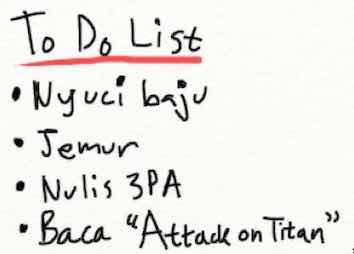 To Do List
• Nyuci baju
• Jemur
• Nulis 3PA
• Baca "Attack on Titan"